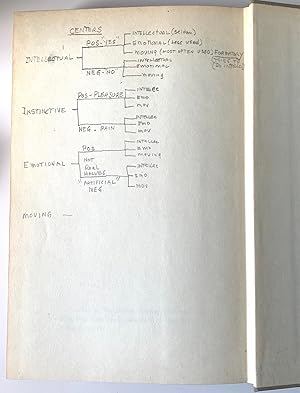 CENTERS
POS "YES"
INTELLECTUAL (SELDOM)
EMOTIONAL (LESS USED)
MOVING (MOST OFTEN USED) FORMATORY
TRIES TO
DO INTELLEC
INTELLECTUAL
NEG-NO
INTELLECTUAL
EMOTIONAL
MOVING
INSTINCTIVE
POS-PLEASURE
INTELLEC
EMO
MOV
NEG. PAIN
INTELLEC
EMO
MOV
EMOTIONAL
POS
INTELLEC
EMO
MOVING
NOT
REAL
HALVES
"ARTIFICIAL"
NEG.
INTELLEC
EMO
MOV
MOVING —